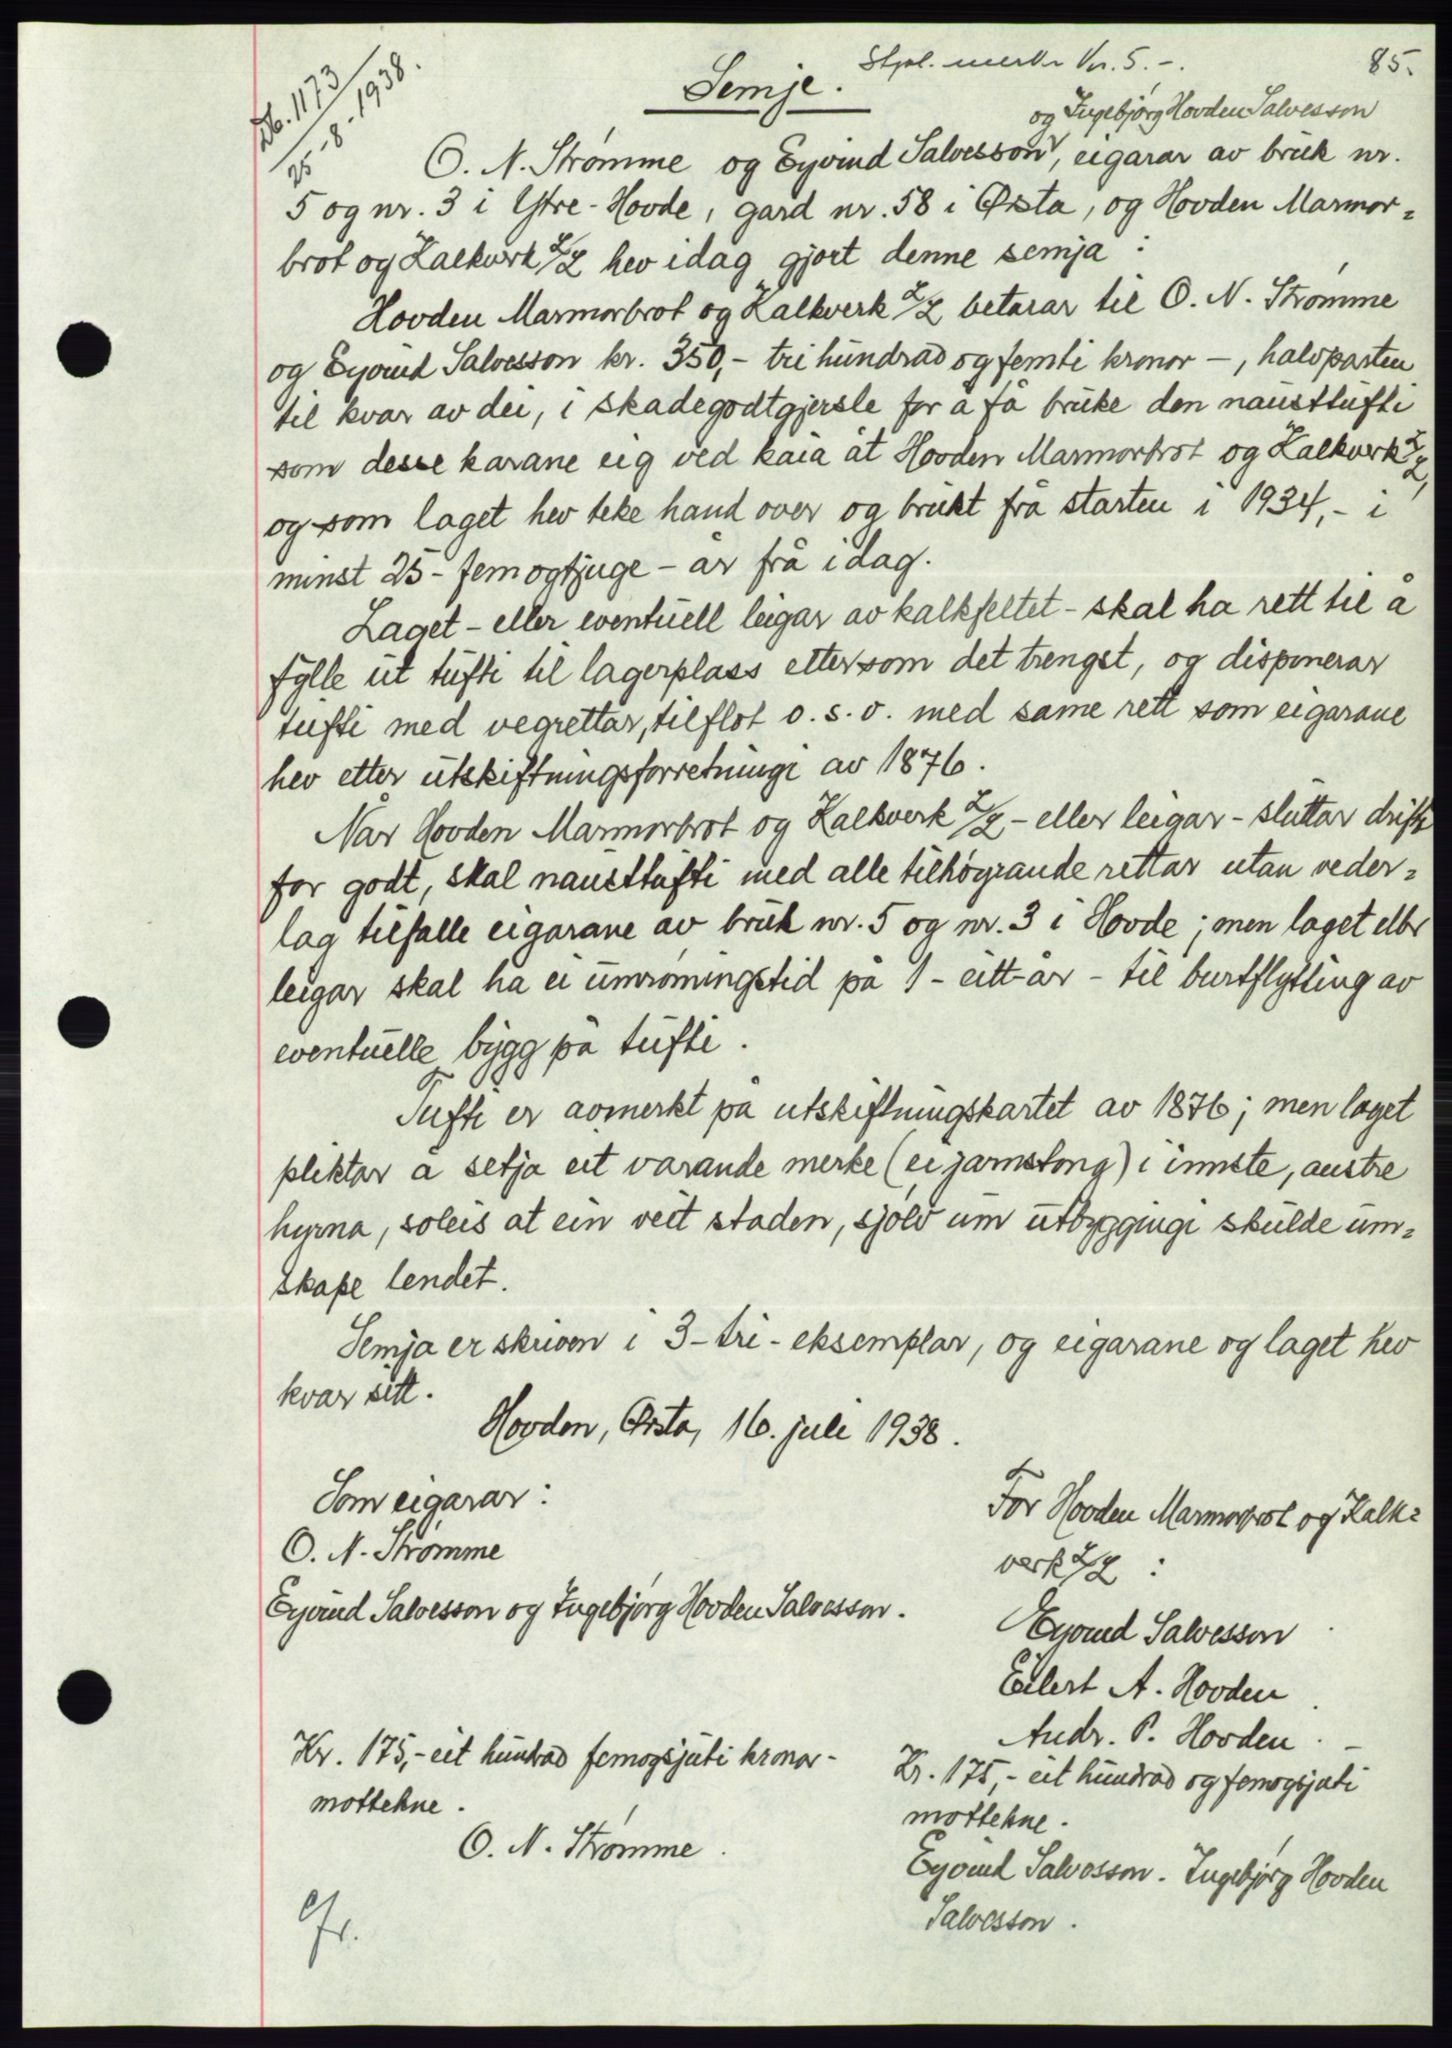 Db. 1173
25-8-1938.
Stpl. merke kr. 5.-.
85.
Semje.
og Ingebjørg Hovden Salvesson
O. N. Strømme og Eyvind Salvesson, eigarar av bruk nr.
5 og nr. 3 i Ytre-Hovde, gard nr. 58 i Ørsta, og Hovden Marmor=
brot og Kalkverk L/L hev idag gjort denne semja:
Hovden Marmorbrot og Kalkverk L/L betarar til O. N. Strømme
og Eyvind Salvesson kr. 350,- tri hundrad og femti kronor -, halvparten
til kvar av dei, i skadegodtgjersle for å få bruke den nausttufti
som desse karane eig ved kaia åt Hovden Marmorbrot og Kalkverk L/L,
og som laget hev teke hand over og brukt frå starten i 1934,- i
minst 25 - femogtjuge - år frå idag.
Laget - eller eventuell leigar av kalkfeltet - skal ha rett til å
fylle ut tufti til lagerplass ettersom det trengst, og disponerar
tufti med vegrettar, tilflot o. s. v. med same rett som eigarane
hev etter utskiftningsforretningi av 1876.
Når Hovden Marmorbrot og Kalkverk L/L - eller leigar - sluttar drifti
for godt, skal nausttufti med alle tilhøyrande rettar utan veder=
lag tilfalle eigarane av bruk nr. 5 og nr. 3 i Hovde; men laget eller
leigar skal ha ei umrømingstid på 1 - eitt år - til burtflytting av
eventuelle bygg på tufti.
Tufti er avmerkt på utskiftningskartet av 1876; men laget
pliktar å setja eit varande merke (ei jarnstong) i innste, austre
hyrna, soleis at ein veit staden, sjølv um utbyggingi skulde um=
skape lendet.
Semja er skriven i 3 - tri - eksemplar, og eigarane og laget hev
kvar sitt.
Hovden, Ørsta, 16. juli 1938.
Som eigarar:
O. N. Strømme
Eyvind Salvesson og Ingebjørg Hovden Salvesson.
For Hovden Marmorbrot og Kalk=
verk L/L :
Eyvind Salvesson
Eilert A. Hovden
Andr. P. Hovden.
Kr. 175,- eit hundrad femogsjuti kronor -
mottekne.
O. N. Strømme.
Kr. 175,- eit hundrad og femogsjuti
mottekne.
Eyvind Salvesson. Ingebjørg Hovden
Salvesson.